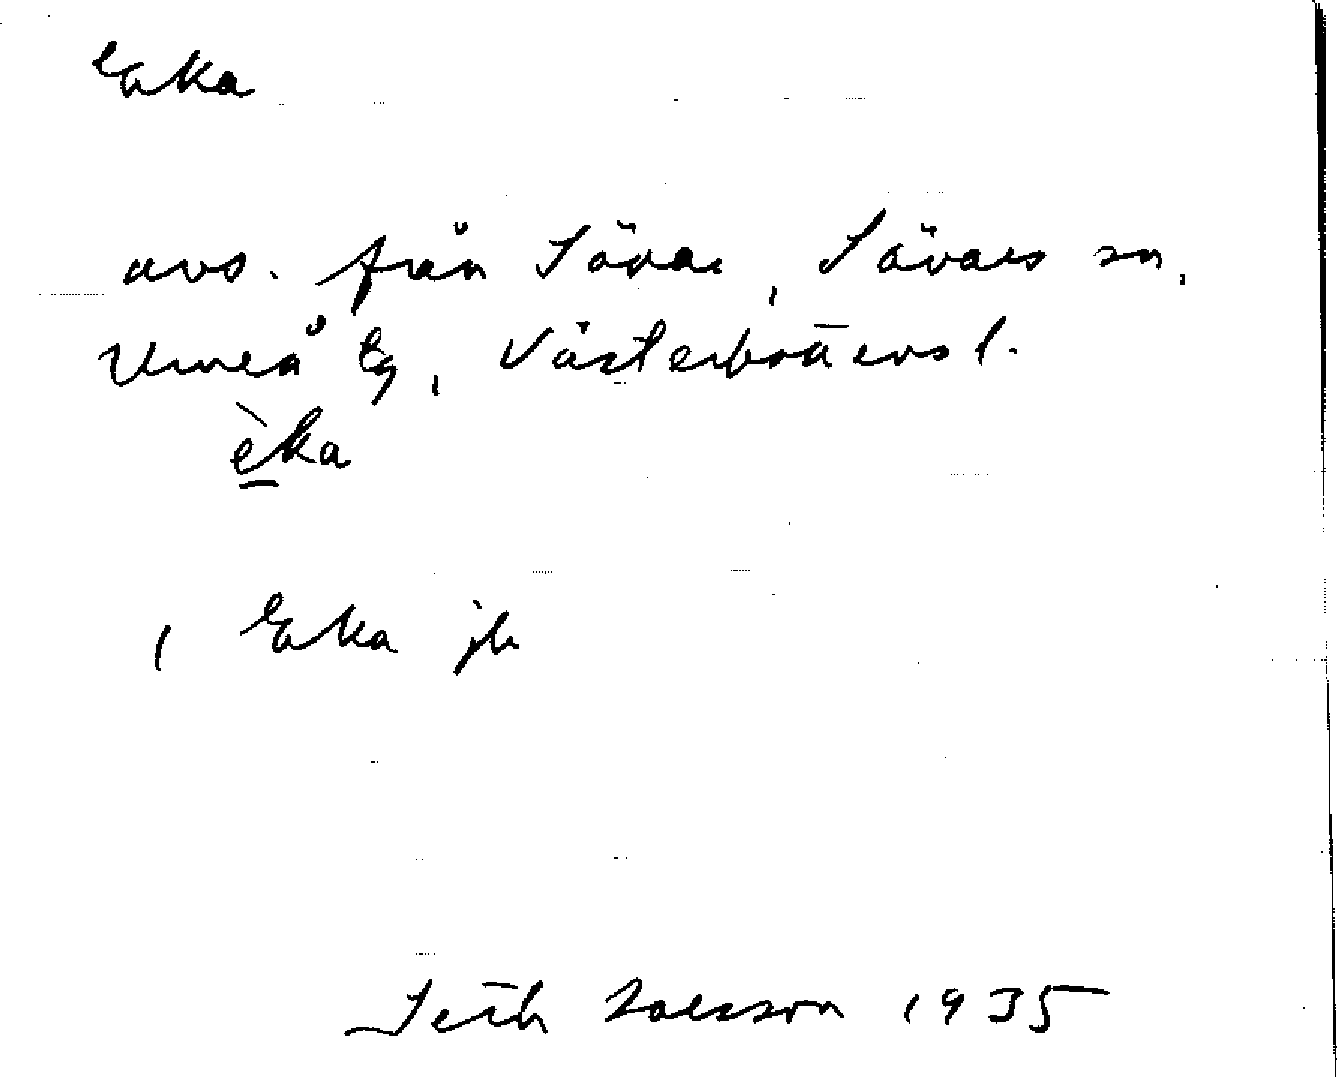 Eka
avs. från Sävar, Sävars sn,
Umeå tg, Västerbottens l.
èka
, Eka jb
Seth 1935